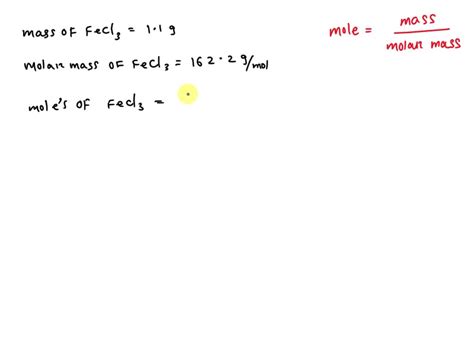 mass of FeCl3 = 1.1 g
mole = mass / molar mass
molar mass of FeCl3 = 162.2 g/mol
mole's of FeCl3 =